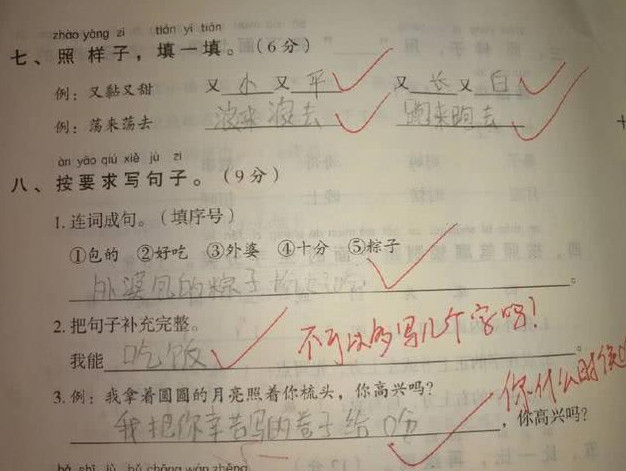 zhào yàng zi tián yi tián
七、照样子，填一填。（6分）
例：又黏又甜 又小又平 又长又白
例：荡来荡去 滚来滚去 跑来跑去
àn yāo qiú xiě jù zi
八、按要求写句子。（9分）
1.连词成句。（填序号）
①包的 ②好吃 ③外婆 ④十分 ⑤粽子
外婆包的粽子十分好吃。
2.把句子补充完整。
我能吃饭。
不可以多写几个字吗！
3.例：我拿着圆圆的月亮照着你梳头，你高兴吗？
你什么时候
我把你辛苦写的卷子给吃，你高兴吗？